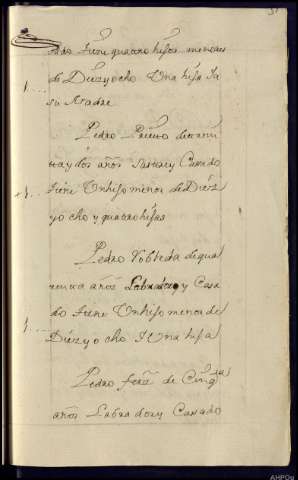 tiene quatro hijos menores
de Diez y ocho Una hija Ya
su Madre
Pedro Prieto de
tay dos años Sastre y Casado
tiene Unhijo menor de Diez
yocho y quatro hijas
Pedro Robleda de qua
renta años Labrador y Casa
do tiene Unhijo menor de
Diez y ocho Y Una hija
Pedro ferz de Cinqta
años Labrador y Casado
AHPOu